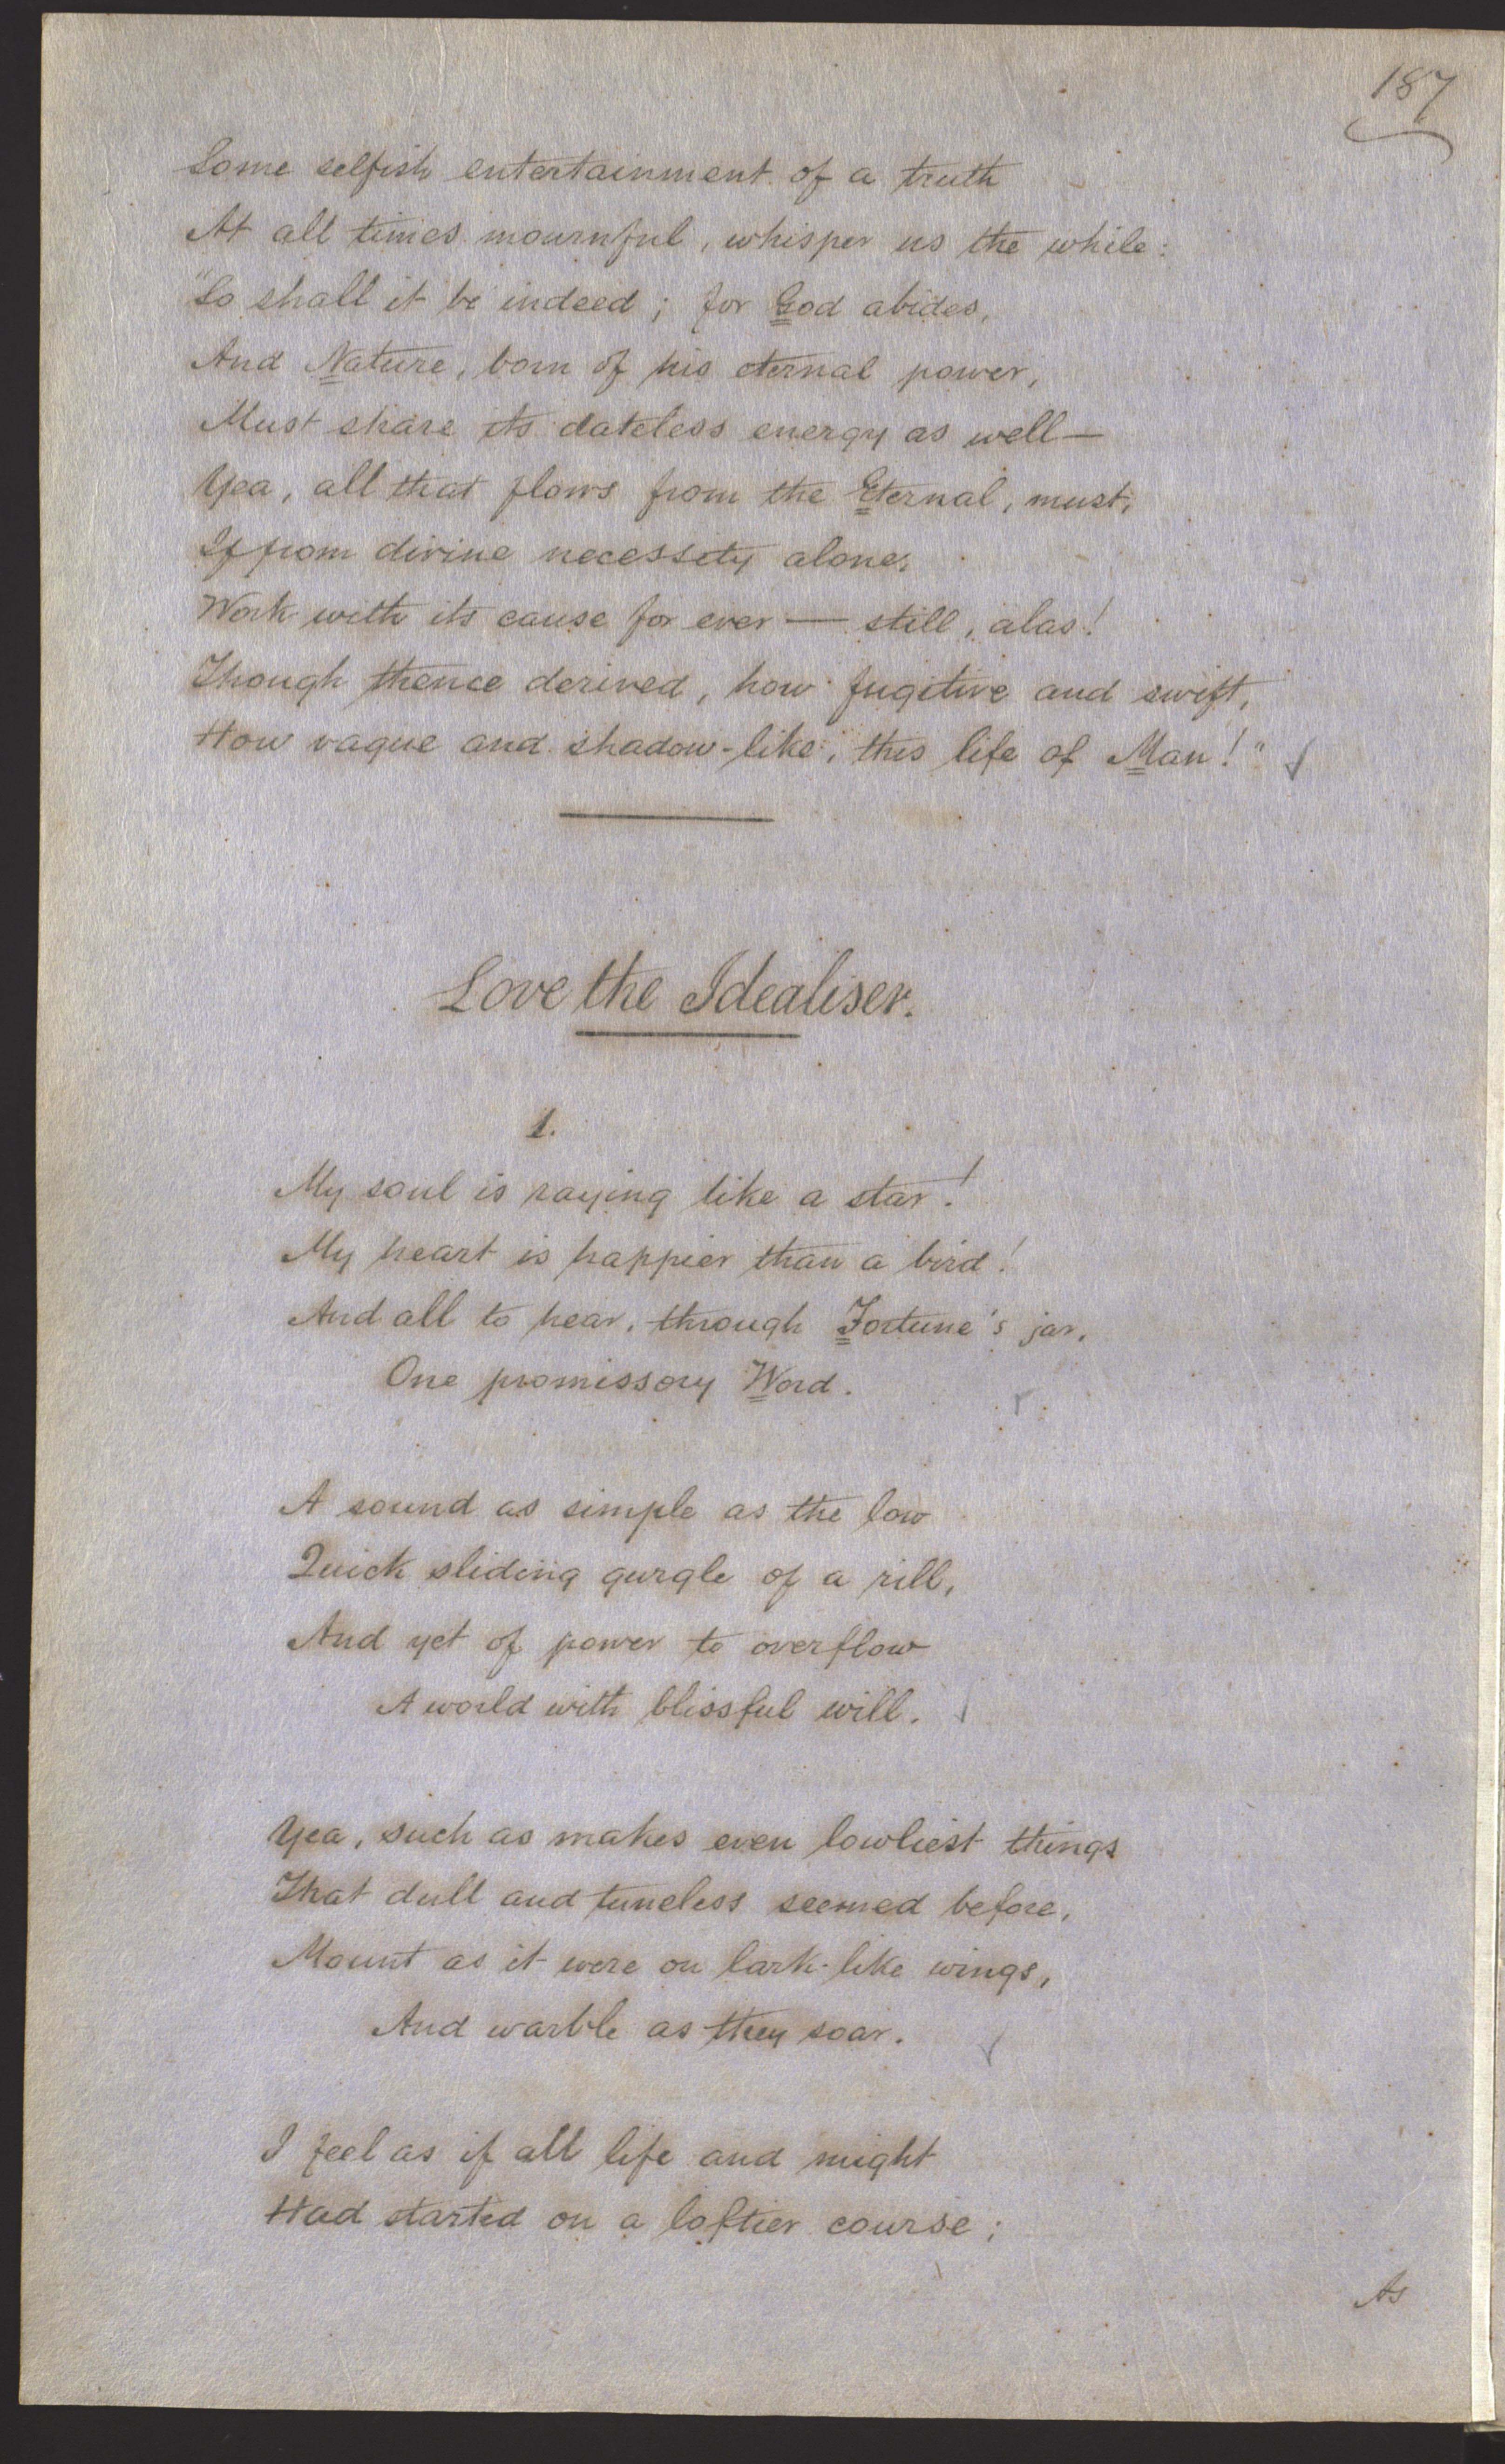 187
Some selfish entertainment of a truth
At all times mournful, whisper us the while:
"So shall it be indeed; for God abides,
And Nature, born of his eternal power,
Must share its dateless energy as well—
Yea, all that flows from the Eternal, must,
If from divine necessity alone,
Work with its cause for ever — still, alas!
Though thence derived, how fugitive and swift,
How vague and shadow-like, this life of Man!"
Love the Idealiser.
1.
My soul is raying like a star!
My heart is happier than a bird!
And all to hear, through Fortune's jar,
One promissory Word.
A sound as simple as the low
Quick sliding gurgle of a rill,
And yet of power to overflow
A world with blissful will.
Yea, such as makes even lowliest things
That dull and tuneless seemed before,
Mount as it were on lark-like wings,
And warble as they soar.
I feel as if all life and might
Had started on a loftier course;
As